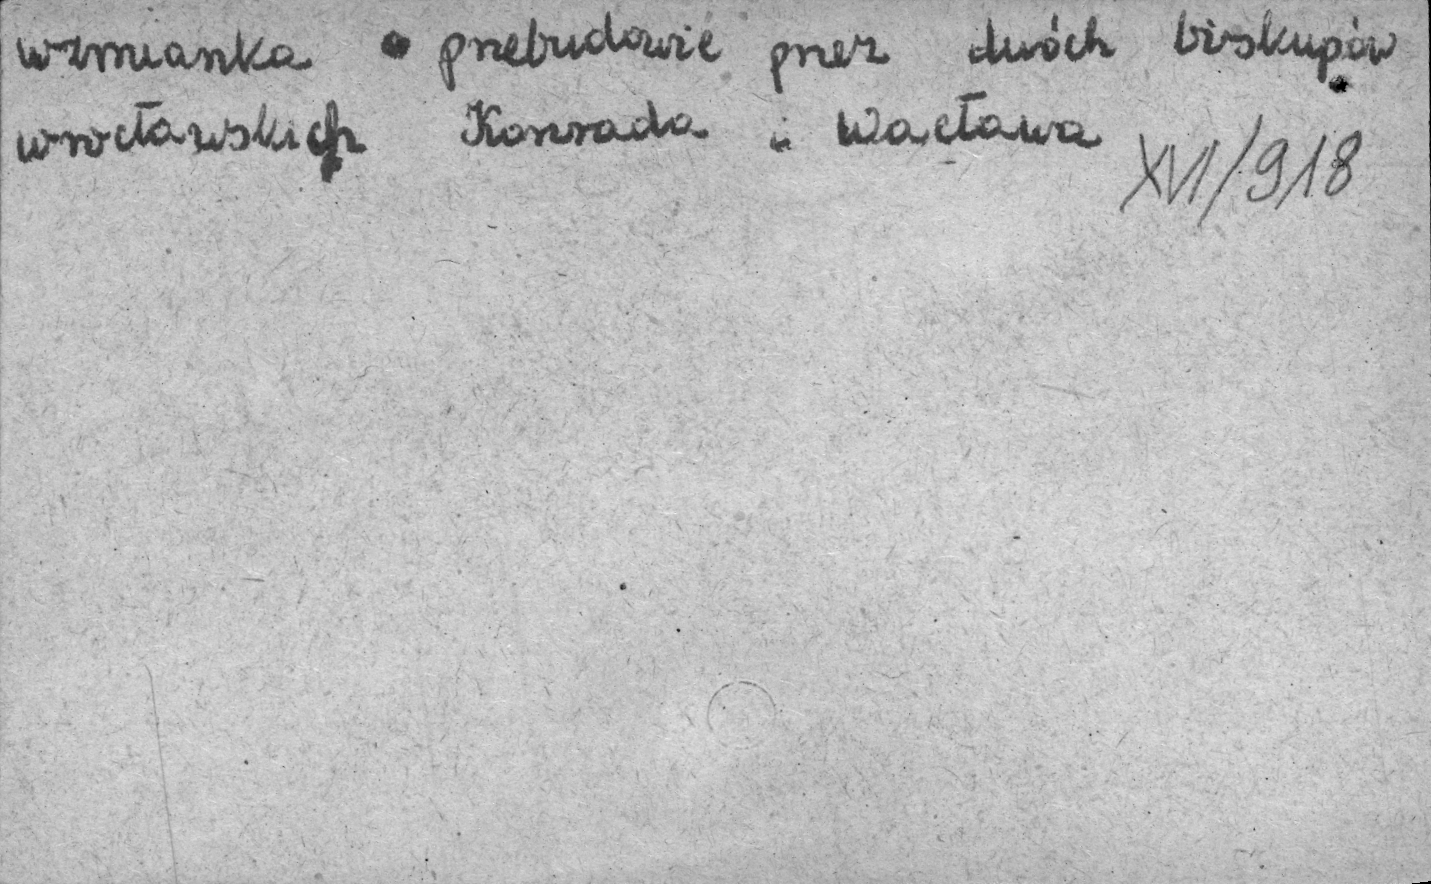 wzmianka o przebudowie przez dwóch biskupów
wrocławskich Konrada i Wacława
XVI/918